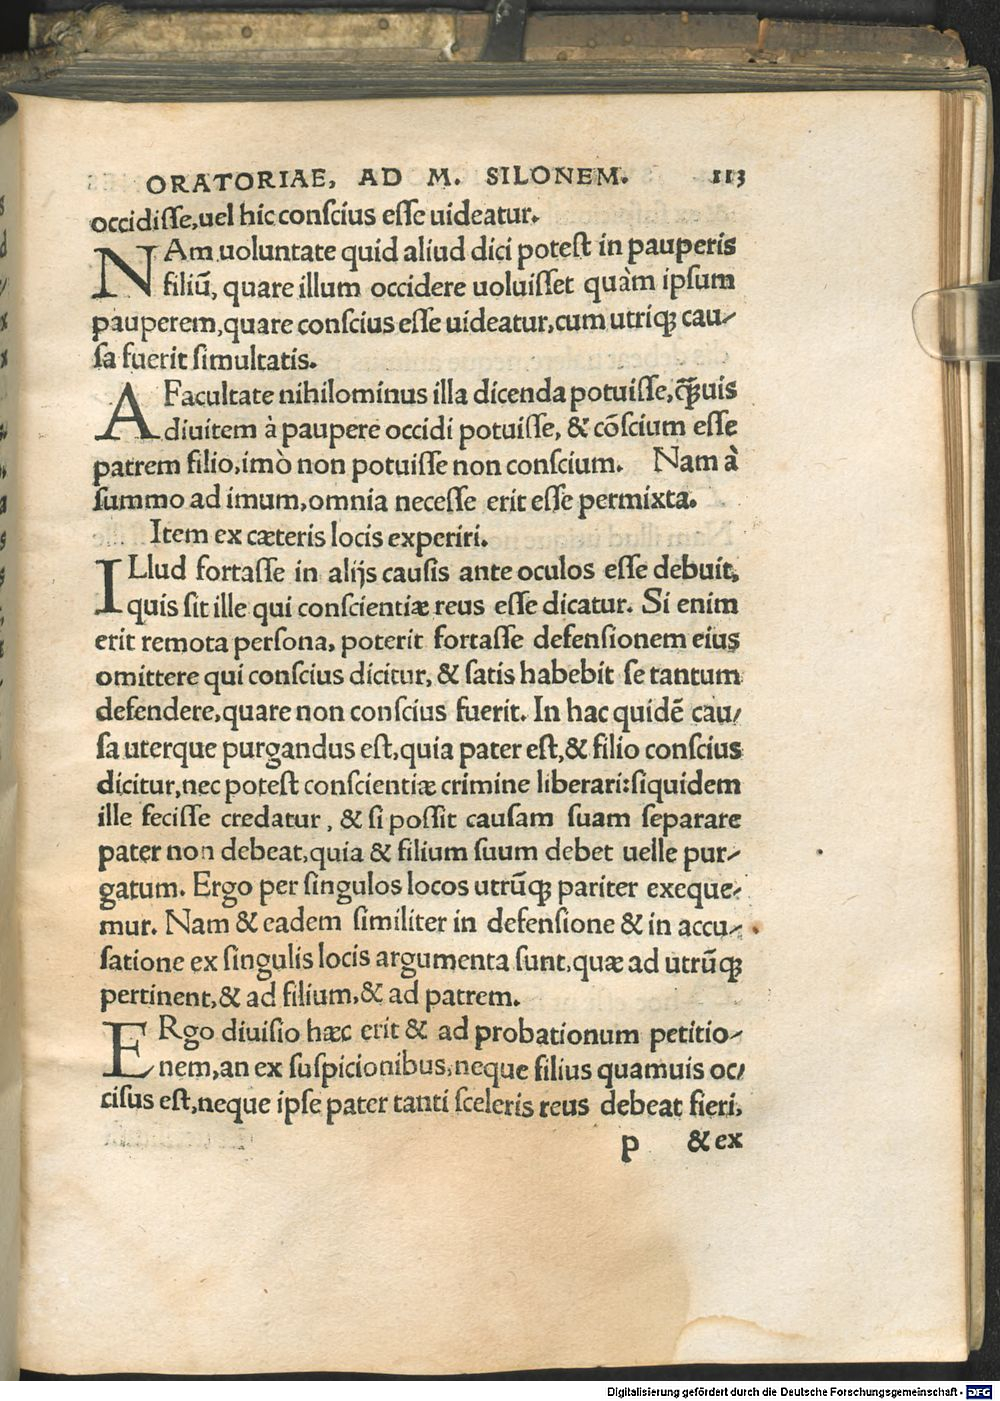 ORATORIAE, AD M. SILONEM. 113
occidisse,uel hic conscius esse uideatur.
NAm uoluntate quid aliud dici potest in pauperis
filiū, quare illum occidere uoluisset quàm ipsum
pauperem,quare conscius esse uideatur,cum utriqꝫ cau-
sa fuerit simultatis.
A Facultate nihilominus illa dicenda potuisse,q̃uis
diuitem à paupere occidi potuisse, & cōscium esse
patrem filio,imò non potuisse non conscium. Nam à
summo ad imum,omnia necesse erit esse permixta.
Item ex cæteris locis experiri.
ILlud fortasse in alijs causis ante oculos esse debuit,
quis sit ille qui conscientiæ reus esse dicatur. Si enim
erit remota persona, poterit fortasse defensionem eius
omittere qui conscius dicitur, & satis habebit se tantum
defendere,quare non conscius fuerit. In hac quidē cau-
sa uterque purgandus est,quia pater est,& filio conscius
dicitur,nec potest conscientiæ crimine liberari:siquidem
ille fecisse credatur, & si possit causam suam separare
pater non debeat,quia & filium suum debet uelle pur-
gatum. Ergo per singulos locos utrūqꝫ pariter exeque-
mur. Nam & eadem similiter in defensione & in accu-
satione ex singulis locis argumenta sunt,quæ ad utrūqꝫ
pertinent,& ad filium,& ad patrem.
ERgo diuisio hæc erit & ad probationum petitio-
nem,an ex suspicionibus,neque filius quamuis oc-
cisus est,neque ipse pater tanti sceleris reus debeat fieri,
p &ex
Digitalisierung gefördert durch die Deutsche Forschungsgemeinschaft - DFG